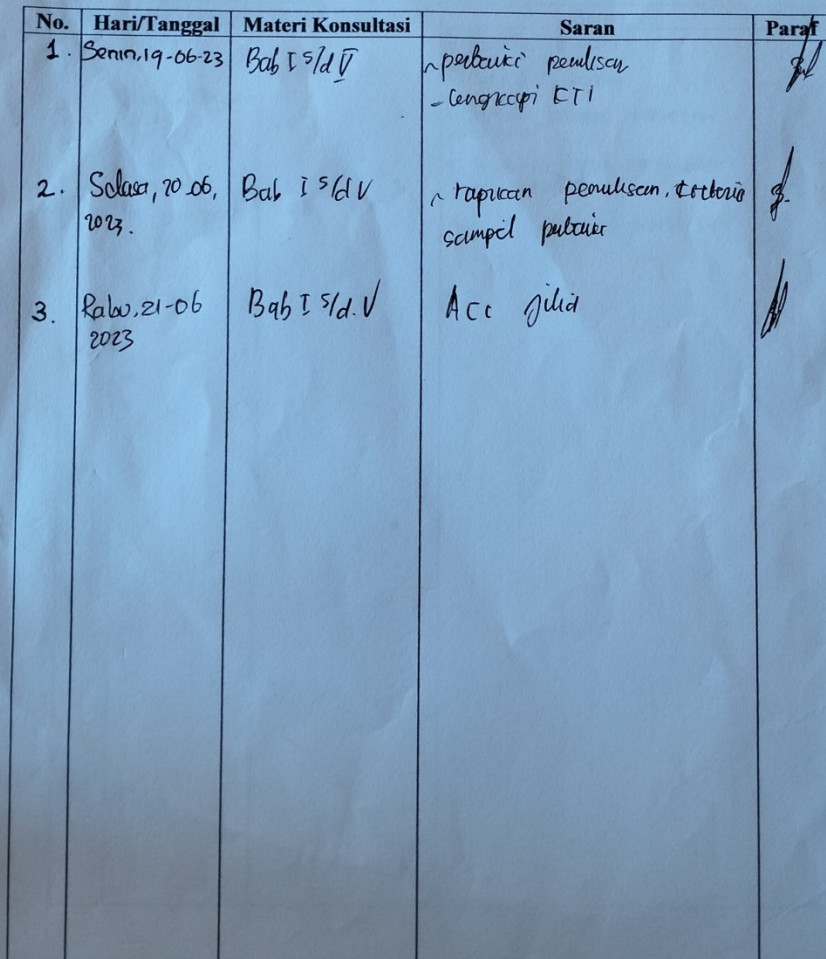 No. Hari/Tanggal Materi Konsultasi Saran Paraf
1. Senin, 19-06-23 Bab I s/d V - perbaiki penulisan
- Lengkapi KTI
2. Selasa, 20-06, Bab I s/d V - rapikan penulisan, kriteria
2023. sampel perbaiki
3. Rabu, 21-06 Bab I s/d. V Acc jilid
2023